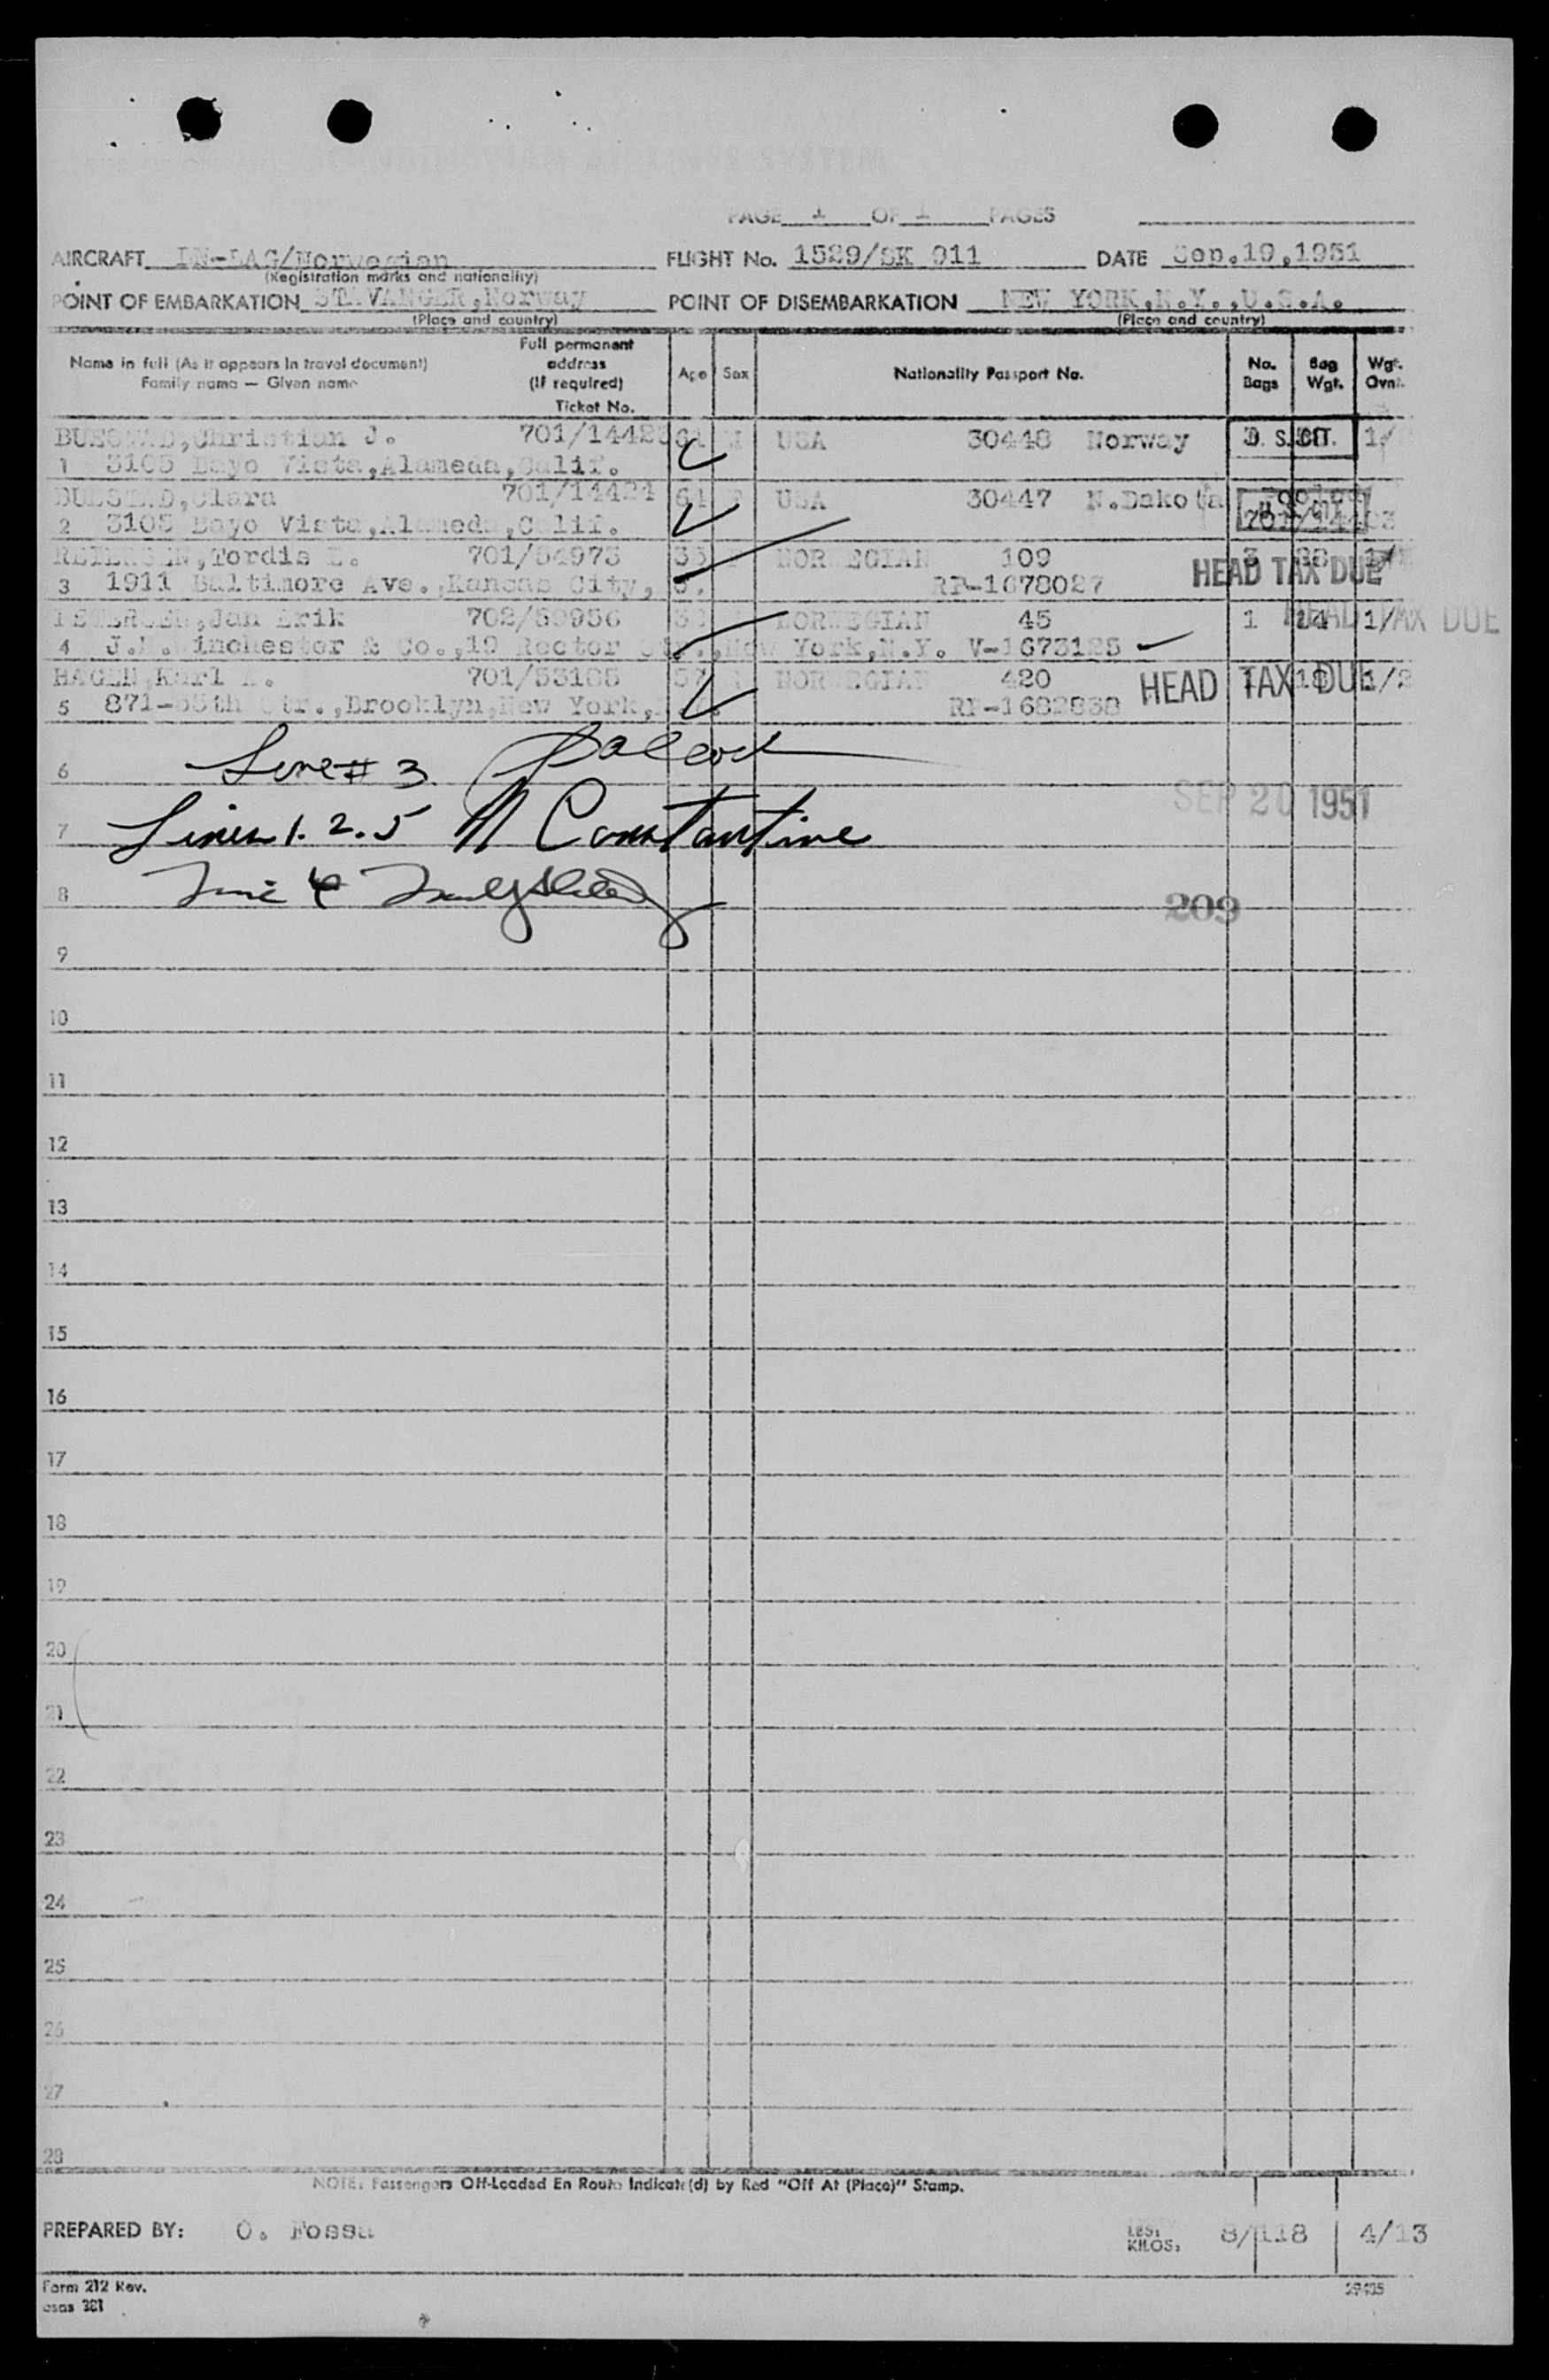 PAGE 1 OF 1 PAGES
AIRCRAFT /Norwegian FLIGHT No. 1529/SK 911 DATE Sep.19,1951
(Registration marks and nationality)
POINT OF EMBARKATION STAVANGER,Norway POINT OF DISEMBARKATION NEW YORK,N.Y.,U.S.A.
(Place and country) (Place and country)
Name in full (As it appears in travel document)
Family name — Given name
Full permanent
address
(If required)
Ticket No.
Age Sex Nationality Passport No. No.
Bags Bag
Wgt. Wgt.
Ovnt.
Christian J. 701/14423 USA 30448 Norway U. S. CIT. 1/
1 3105 Bayo Vista,Alameda,Calif.
Clara 701/14424 64 F USA 30447 N.Dakota Pooled
2 3105 Bayo Vista,Alameda,Calif. 701/14423
Tordis 701/54973 NORWEGIAN 109 3
3 1911 Baltimore Ave.,Kansas City, RP-1678027 HEAD TAX DUE
Jan Erik 702/59956 NORWEGIAN 45 1 14 1/ HEAD TAX DUE
4 Winchester & Co.,19 Rector Str.,New York,N.Y. V-1673125
HAGEN,Karl 701/53185 57 NORWEGIAN 420 HEAD TAX DUE 1/2
5 871-55th Str.,Brooklyn,New York, RP-1682838
6 Line # 3
7 Lines 1. 2. 5 N Constantine
SEP 20 1951
8 Line 4
209
9
10
11
12
13
14
15
16
17
18
19
20
21
22
23
24
25
26
27
28
NOTE: Passengers Off-Loaded En Route Indicate(d) by Red "Off At (Place)" Stamp.
PREPARED BY: O. Fossa LBS:
KILOS: 8/118 4/13
Form 212 Rev.
29435